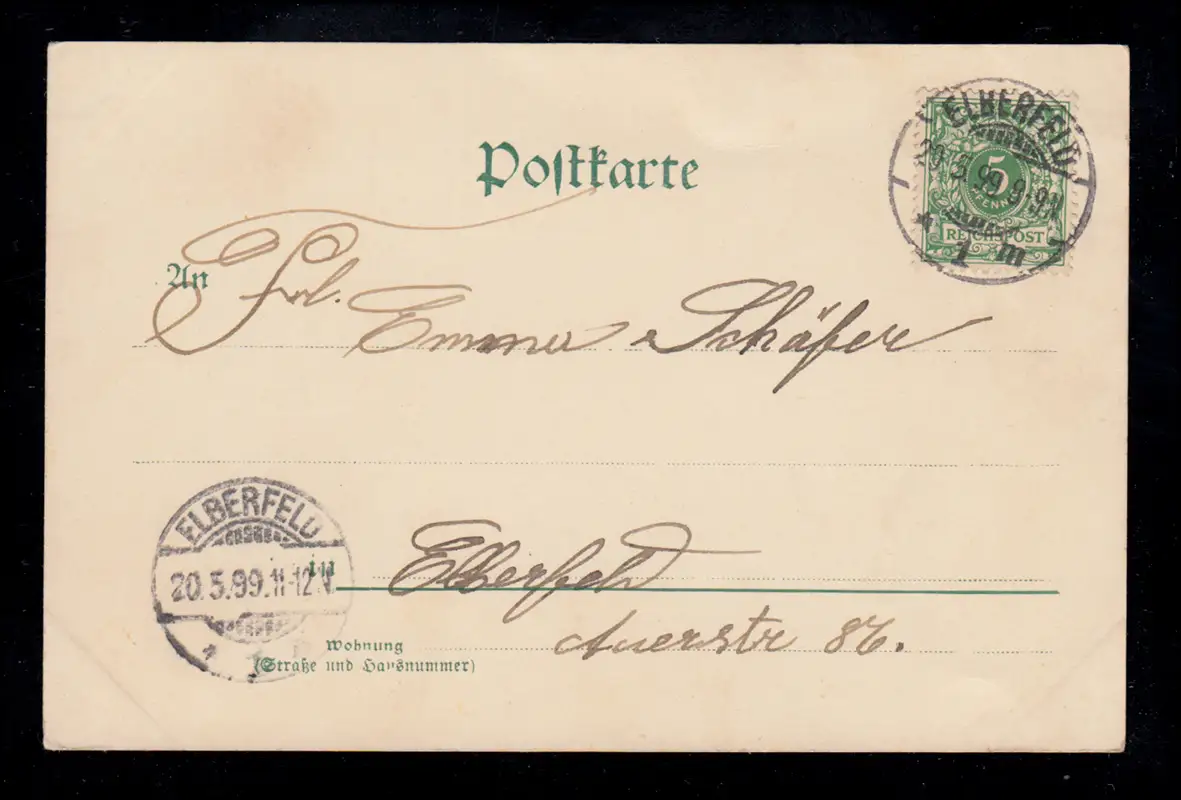 Postkarte
ELBERFELD
20 5 99 8-9N
* 1 m
5
PFENNIG
REICHSPOST
An Frl. Emma Schäfer
ELBERFELD
20.5.99.11-12N
* 1
in Elberfeld
Auerstr 86.
Wohnung
(Straße und Hausnummer)